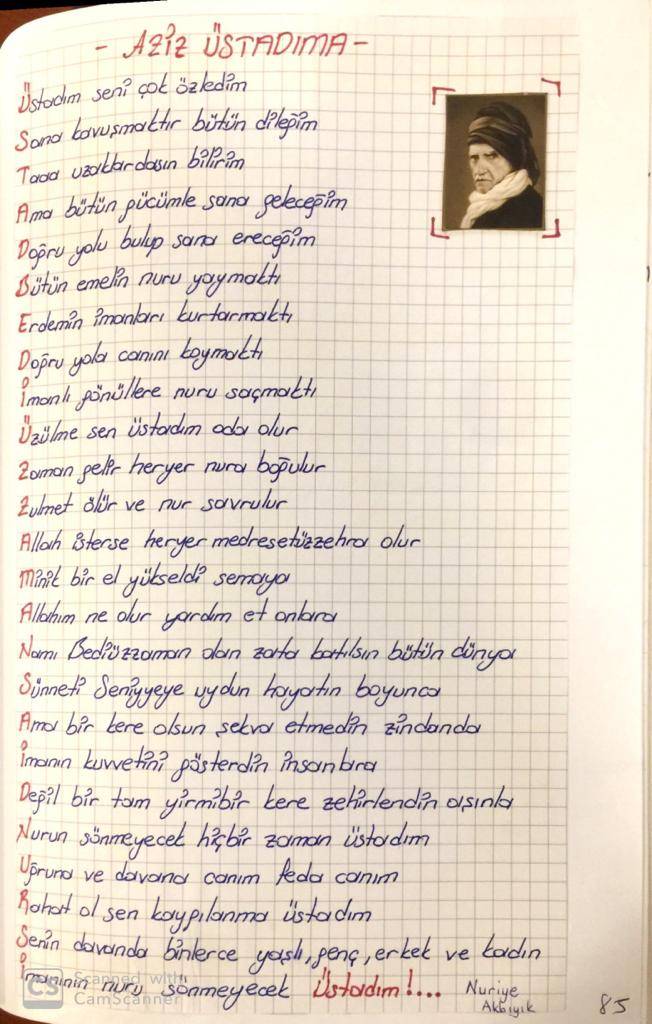 - AZİZ ÜSTADIMA -
Üstadım seni çok özledim
Sana kavuşmaktır bütün dileğim
Taaa uzaklardasın bilirim
Ama bütün gücümle sana geleceğim
Doğru yolu bulup sana ereceğim
Bütün emelin nuru yaymaktı
Erdemin imanları kurtarmaktı
Doğru yola canını koymaktı
İmanlı gönüllere nuru saçmaktı
Üzülme sen üstadım oda olur
Zaman gelir heryer nura boğulur
Zulmet ölür ve nur savrulur
Allah isterse heryer medresetüzzehra olur
Minik bir el yükseldi semaya
Allahım ne olur yardım et onlara
Namı Bediüzzaman olan zata katılsın bütün dünya
Sünneti Seniyyeye uydun hayatın boyunca
Ama bir kere olsun şekva etmedin zindanda
İmanın kuvvetini gösterdin insanlara
Değil bir tam yirmibir kere zehirlendin aşınla
Nurun sönmeyecek hiçbir zaman üstadım
Uğruna ve davana canım feda canım
Rahat ol sen kaygılanma üstadım
Senin davanda binlerce yaşlı, genç, erkek ve kadın
İmanının nuru sönmeyecek Üstadım!...
Nuriye
Akbıyık
85
CS Scanned with
CamScanner